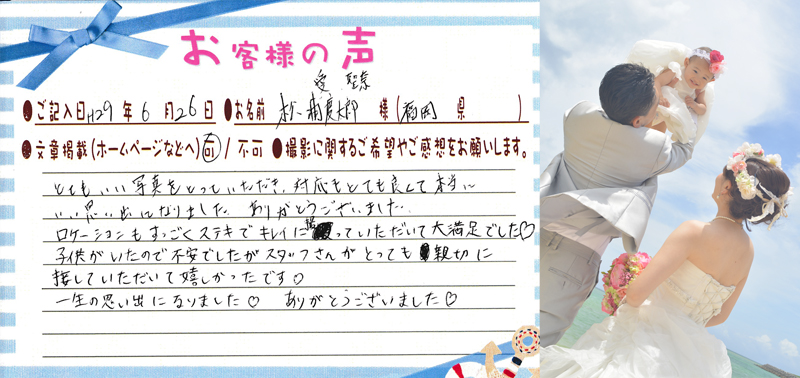 お客様の声
愛 聖奈
●ご記入日 H29年 6月 26日 ●お名前 慶太郎 様 (福岡 県 )
●文章掲載(ホームページなどへ) 可 / 不可 ●撮影に関するご希望やご感想をお願いします。
とてもいい写真をとっていただき、対応もとても良くて本当に
いい思い出になりました。ありがとうございました。
ロケーションもすっごくステキでキレイに撮っていただいて大満足でした♡
子供がいたので不安でしたがスタッフさんがとっても親切に
接していただいて嬉しかったです♡
一生の思い出になりました♡ ありがとうございました♡